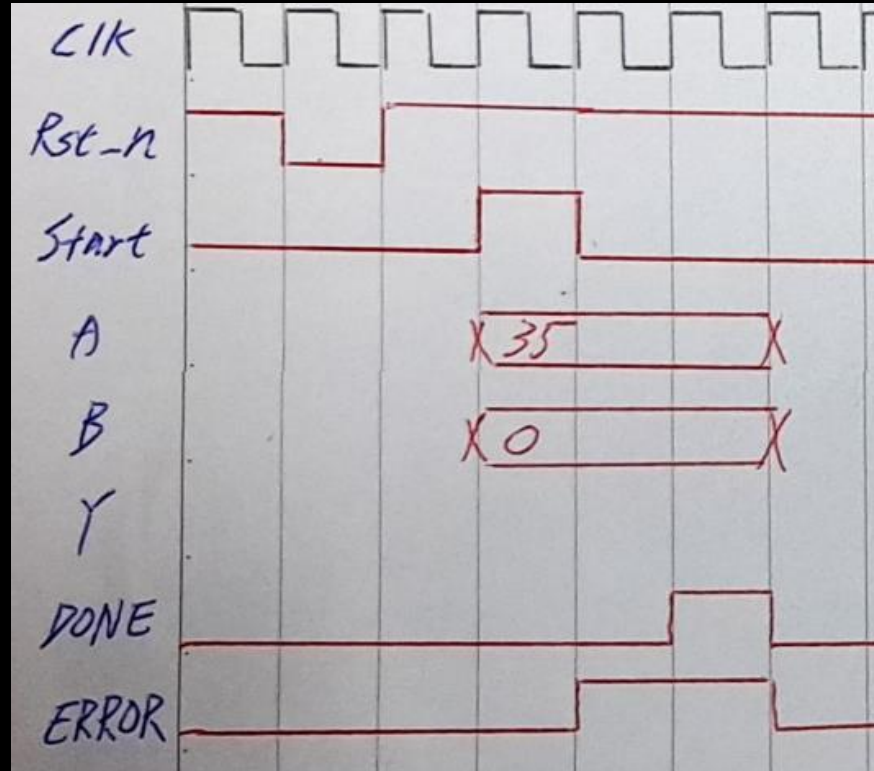 Clk
Rst_n
Start
A
35
B
0
Y
DONE
ERROR